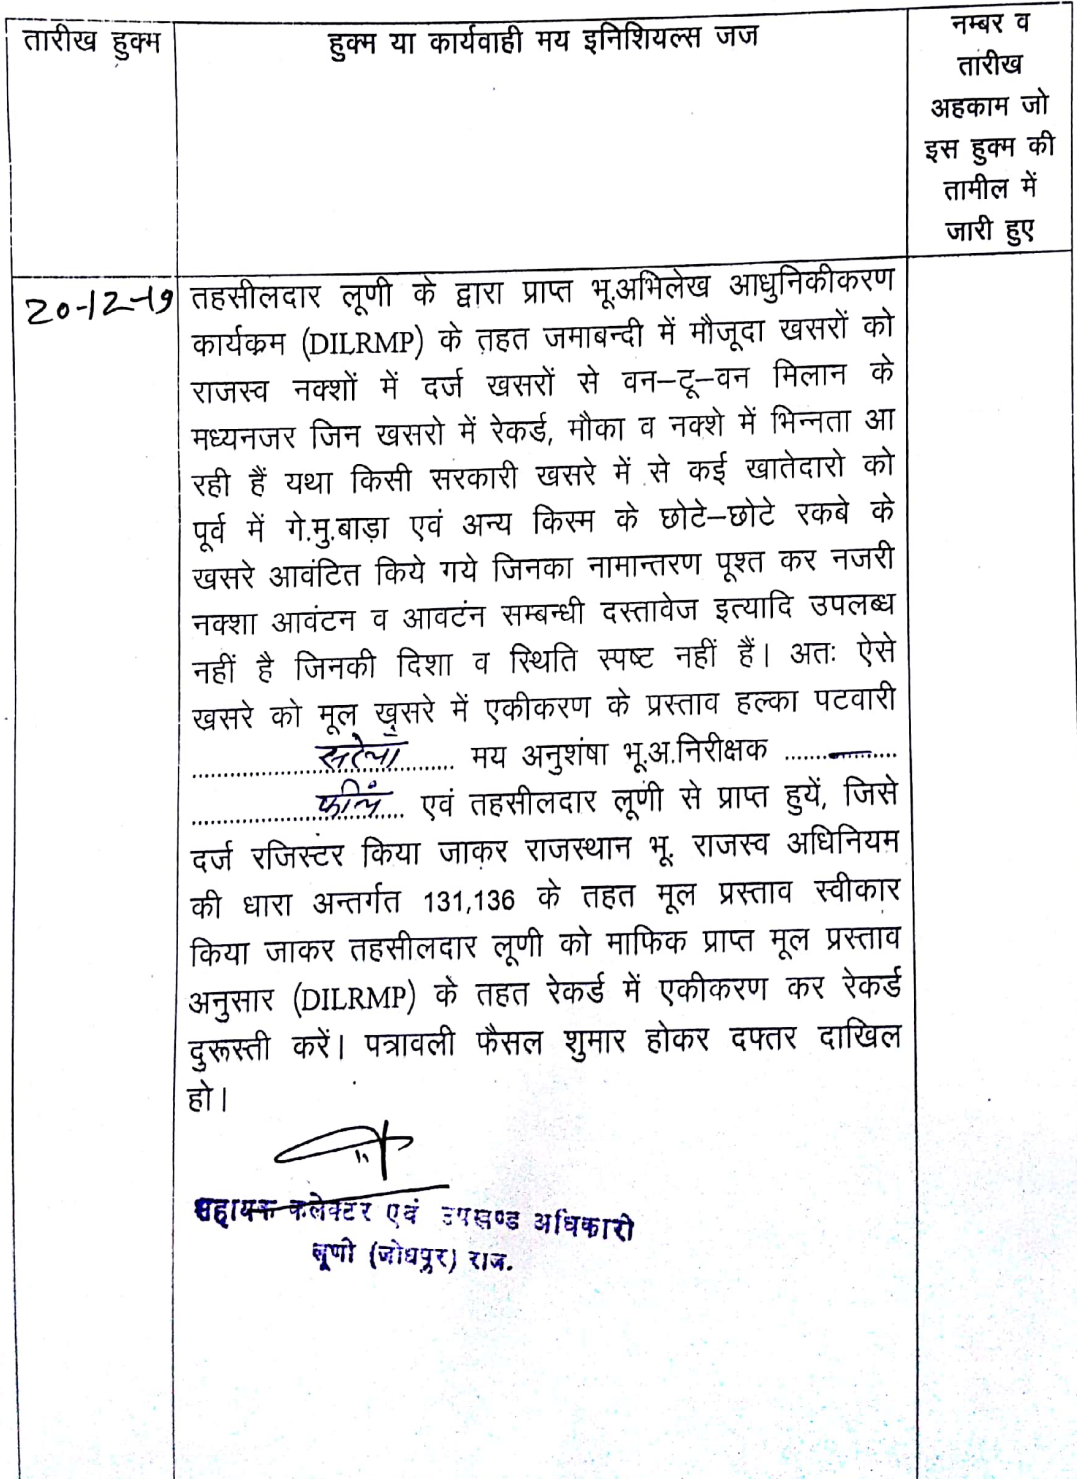 तारीख हुक्म
हुक्म या कार्यवाही मय इनिशियल्स जज
नम्बर व
तारीख
अहकाम जो
इस हुक्म की
तामील में
जारी हुए
20-12-19
तहसीलदार लूणी के द्वारा प्राप्त भू.अभिलेख आधुनिकीकरण
कार्यक्रम (DILRMP) के तहत जमाबन्दी में मौजूदा खसरों को
राजस्व नक्शों में दर्ज खसरों से वन–टू–वन मिलान के
मध्यनजर जिन खसरो में रेकर्ड, मौका व नक्शे में भिन्नता आ
रही हैं यथा किसी सरकारी खसरे में से कई खातेदारो को
पूर्व में गे.मु.बाड़ा एवं अन्य किस्म के छोटे–छोटे रकबे के
खसरे आवंटित किये गये जिनका नामान्तरण पूश्त कर नजरी
नक्शा आवंटन व आवटंन सम्बन्धी दस्तावेज इत्यादि उपलब्ध
नहीं है जिनकी दिशा व स्थिति स्पष्ट नहीं हैं। अतः ऐसे
खसरे को मूल खसरे में एकीकरण के प्रस्ताव हल्का पटवारी
मय अनुशंषा भू.अ.निरीक्षक
एवं तहसीलदार लूणी से प्राप्त हुयें, जिसे
दर्ज रजिस्टर किया जाकर राजस्थान भू. राजस्व अधिनियम
की धारा अन्तर्गत 131,136 के तहत मूल प्रस्ताव स्वीकार
किया जाकर तहसीलदार लूणी को माफिक प्राप्त मूल प्रस्ताव
अनुसार (DILRMP) के तहत रेकर्ड में एकीकरण कर रेकर्ड
दुरूस्ती करें। पत्रावली फैसल शुमार होकर दफ्तर दाखिल
हो।
सहायक कलेक्टर एवं उपखण्ड अधिकारी
लूणी (जोधपुर) राज.